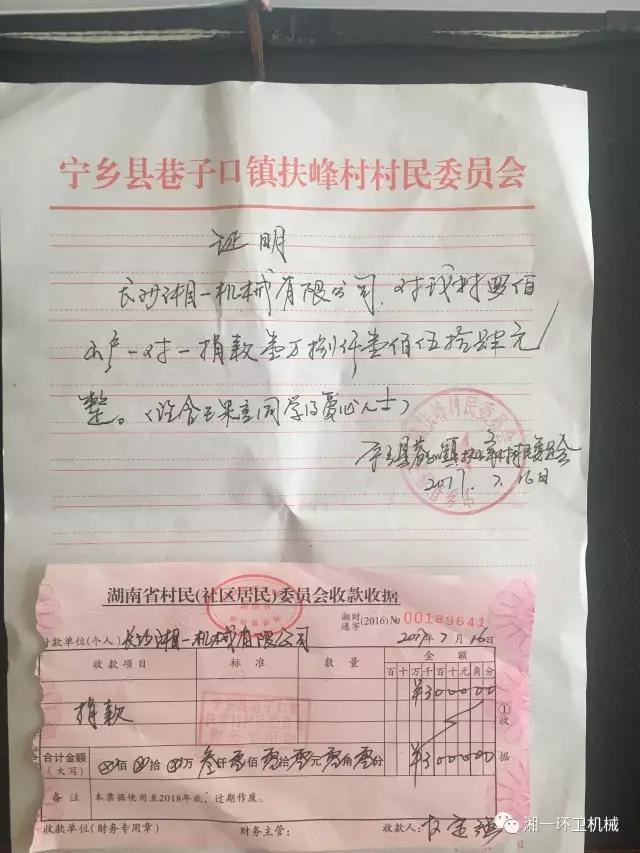 宁乡县巷子口镇扶峰村村民委员会
证明
长沙湘一机械有限公司.对我村四佰
户一对一捐款壹万捌仟壹佰伍拾肆元
整。(证合王果立同学的爱心人士)
宁乡县巷子口镇扶峰村村民委员会
2017. 7. 16日
湖南省村民(社区居民)委员会收款收据
湘财通字 (2016) № 00189641
付款单位(个人) 长沙湘一机械有限公司 2017年7月16日
收款项目 标准 数量 金额
百十万千百十元角分
捐款 ¥300000
合计金额(大写) ⊗佰⊗拾⊗万叁仟零佰零拾零元零角零分 ¥300000
①收据
备注 本票据使用至2018年底,过期作废。
收款单位(财务专用章) 财务主管: 收款人:
湘一环卫机械